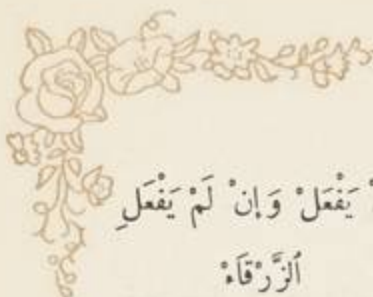 يَفْعَلْ وَإِنْ لَمْ يَفْعَلِ
ٱلزَّرْقَاءْ